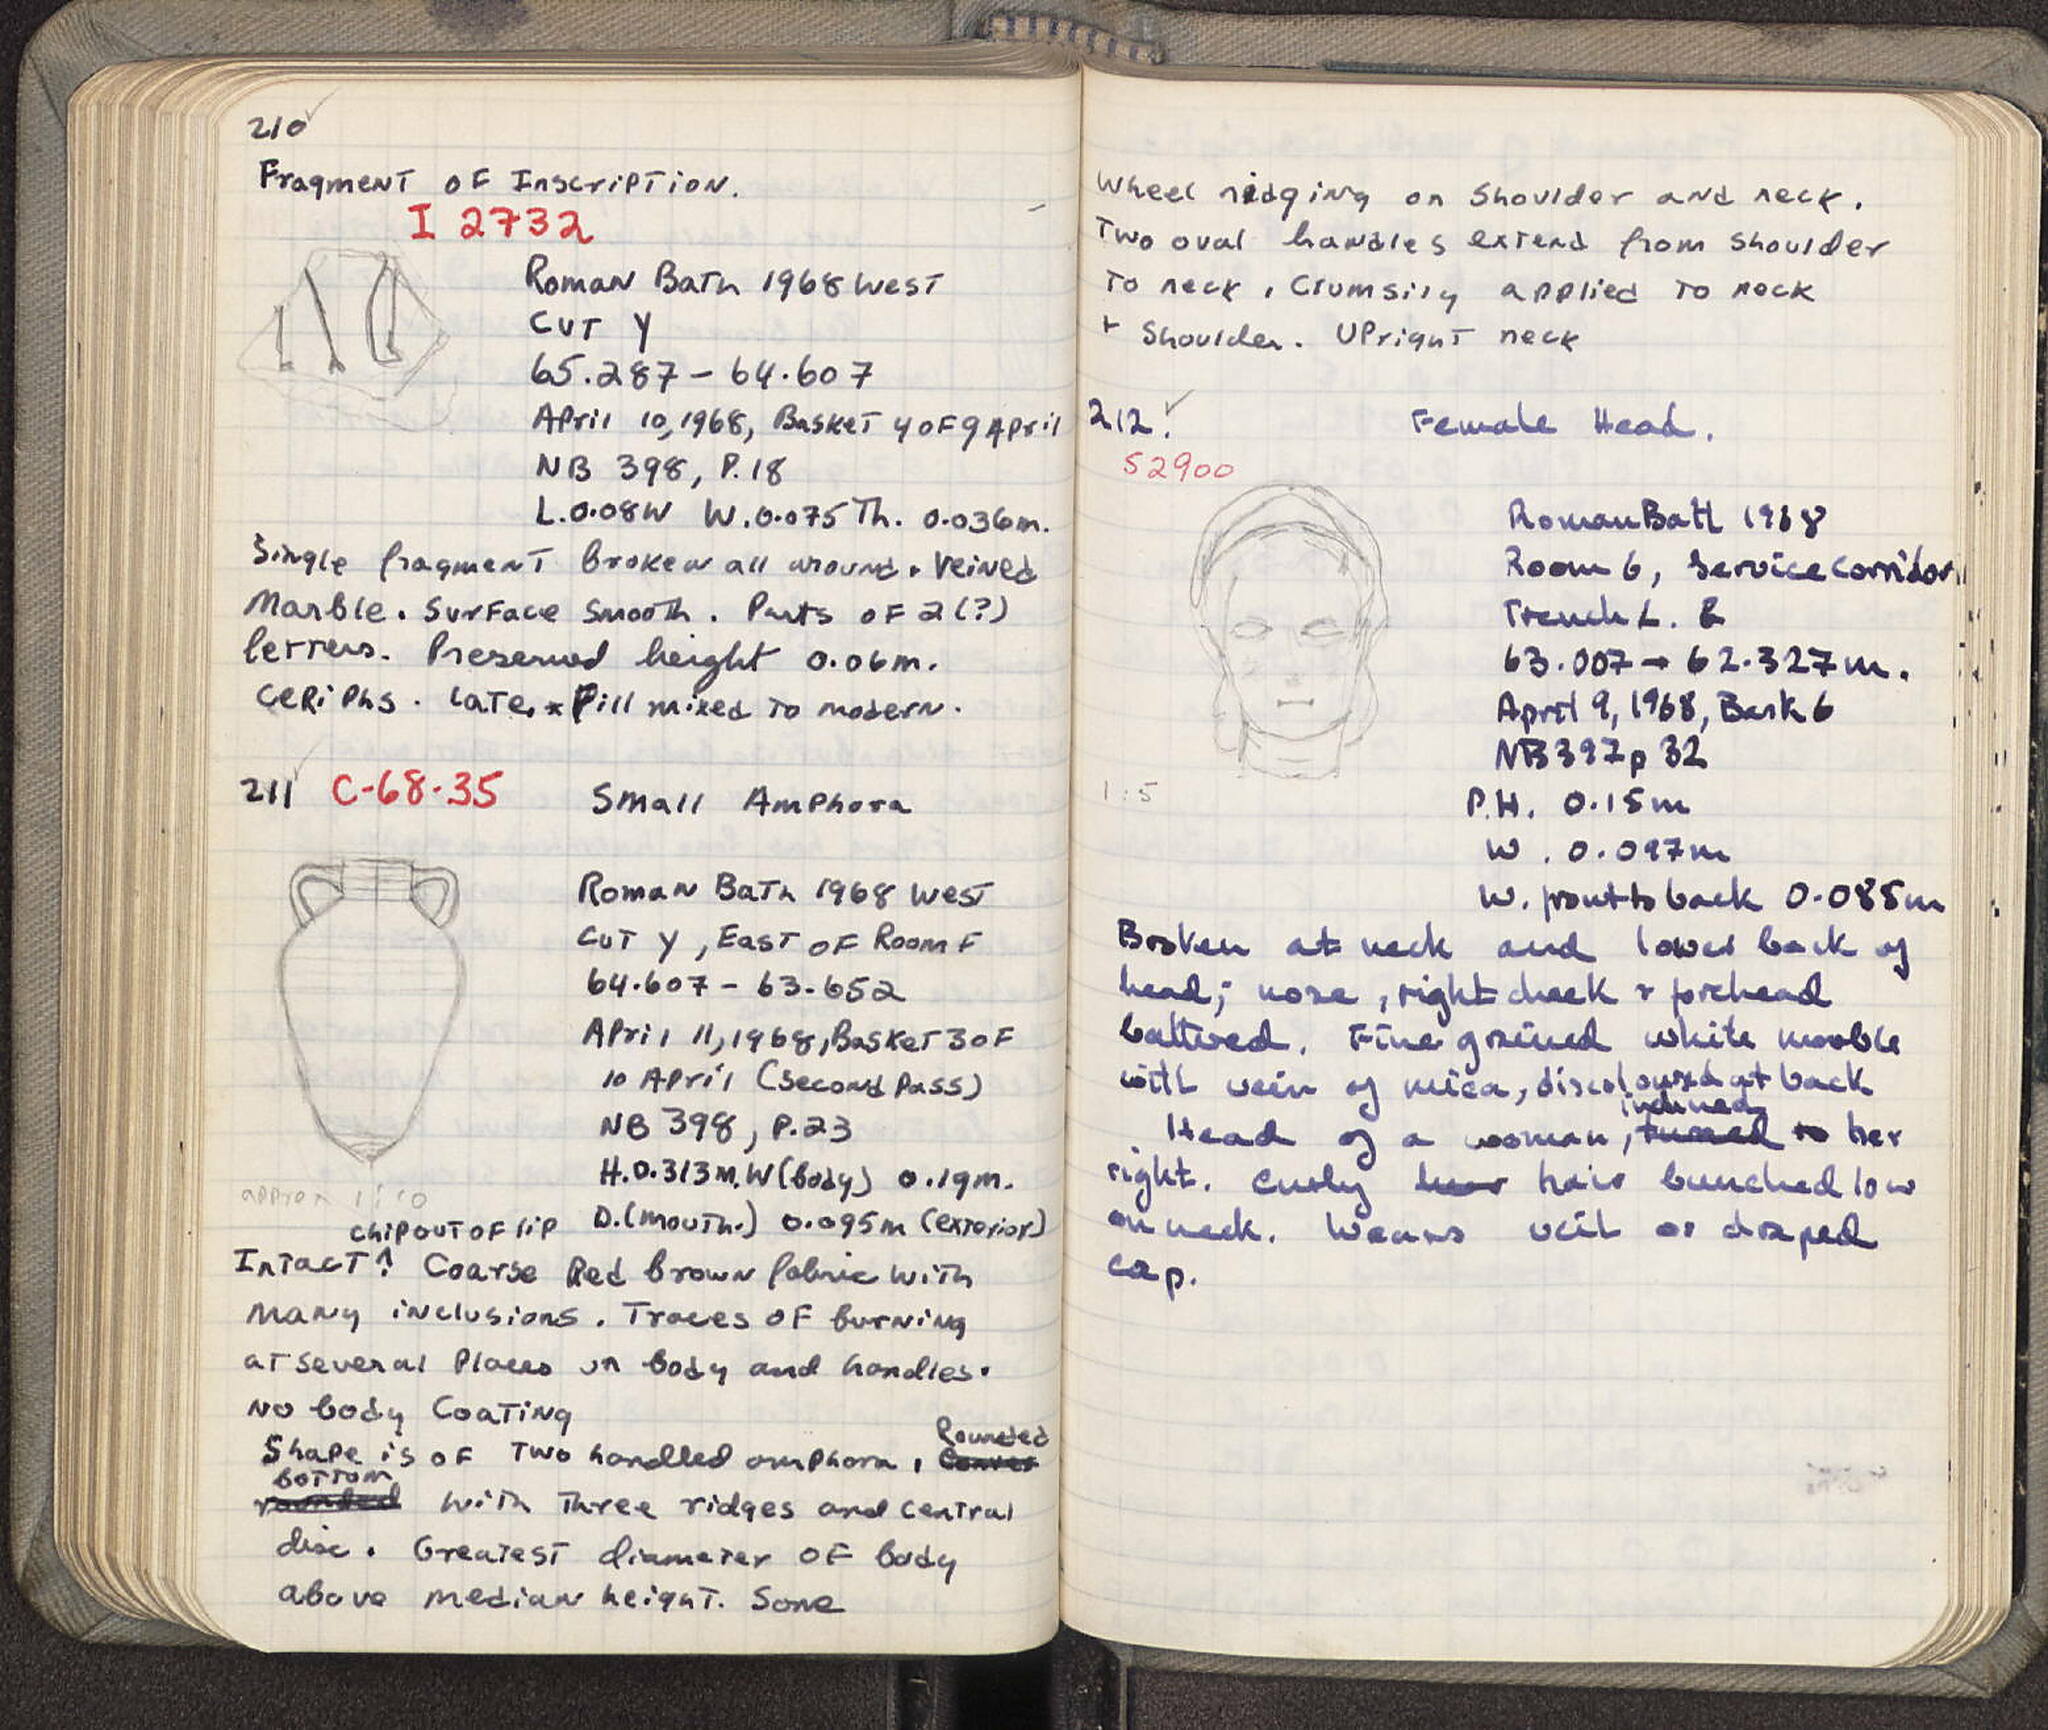 210 ✓
Fragment of Inscription.
I 2732
Roman Bath 1968 West
Cut Y
65.287 - 64.607
April 10, 1968, Basket 4 of 9 April
NB 398, P.18
L. 0.08 W. 0.075 Th. 0.036m.
Single fragment broken all around. Veined
Marble. Surface smooth. Parts of 2(?)
letters. Preserved height 0.06m.
Ceriphs. Late. Fill mixed to modern.
211 ✓ C-68-35 Small Amphora
Roman Bath 1968 West
Cut Y, East of Room F
64.607 - 63.652
April 11, 1968, Basket 3 of
10 April (Second Pass)
NB 398, P.23
H. 0.313m. W (body) 0.19m.
approx 1:10
chip out of lip D. (mouth.) 0.095m (exterior)
Intact ^ Coarse Red brown fabric with
many inclusions. Traces of burning
at several places on body and handles.
No body Coating
Rounded
Shape is of Two handled amphora,
bottom
rounded with three ridges and central
disc. Greatest diameter of body
above median height. Some
Wheel ridging on Shoulder and neck.
Two oval handles extend from shoulder
to neck, Clumsily applied to neck
+ Shoulder. Upright neck
212. ✓ Female Head.
S2900
Roman Bath 1968
Room 6, Service Corridor
Trench L. B
63.007 → 62.327m.
April 9, 1968, Bask 6
NB 397 p 32
1:5
P.H. 0.15m
W. 0.097m
W. front to back 0.085m
Broken at neck and lower back of
head; nose, right cheek & forehead
battered. Fine grained white marble
with vein of mica, discoloured at back
inclined
Head of a woman, turned to her
right. Curly hair bunched low
on neck. Wears veil or draped
cap.